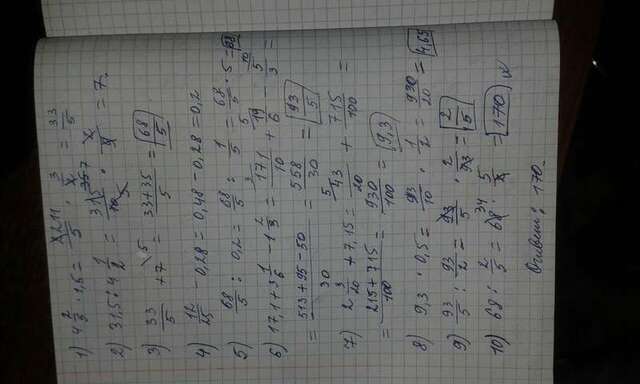 1) 4 2/3 · 1,5 = 11/5 · 3/1 = 33/5
2) 31,5 : 4 1/2 = 315/10 · 2/9 = 7.
3) 33/5 + 7 = 33+35/5 = 68/5
4) 12/25 - 0,28 = 0,48 - 0,28 = 0,2
5) 68/5 : 0,2 = 68/5 : 1/5 = 68/5 · 5 = 68
6) 17,1 + 3 1/6 - 1 2/3 = 171/10 + 19/6 - 5/3 =
= 513+95-50/30 = 558/30 = 93/5
7) 2 3/20 + 7,15 = 43/20 + 715/100 =
= 215+715/100 = 930/100 = 9,3
8) 9,3 · 0,5 = 93/10 · 1/2 = 930/20 = 4,65
9) 93/5 : 93/2 = 93/5 · 2/93 = 2/5
10) 68 : 2/5 = 68 · 5/2 = 170
Ответ: 170.